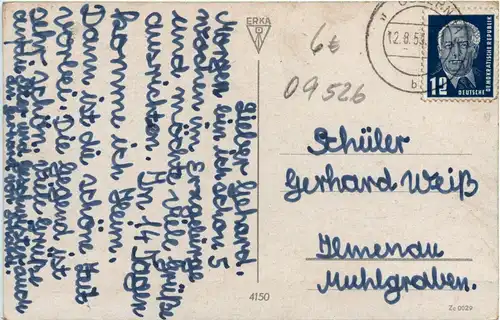 Lieber Gerhard.
Nun bin ich schon 5
Wochen im Erzgebirge
und möchte viele Grüße
ausrichten. In 14 Tagen
komme ich heim.
Dann ist die schöne Zeit
vorbei. Die Gegend ist
sehr schön. Viele Grüße
ERKA
6
09526
12.8.53
DEUTSCHE DEMOKRATISCHE REPUBLIK
12
Schüler
Gerhard Weiß
Ilmenau
Muhlgraben.
4150
Zc 0029